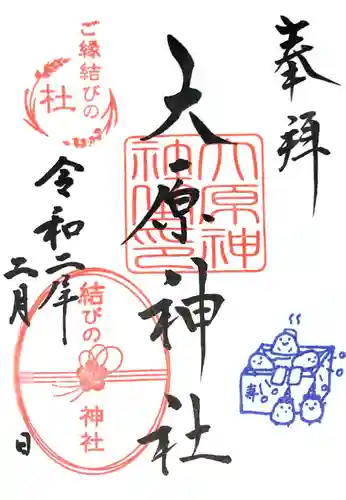 奉拝
大原神社
大原神
社之印
ご縁結びの
社
令和二年
二月
日
結びの
神社
寿し